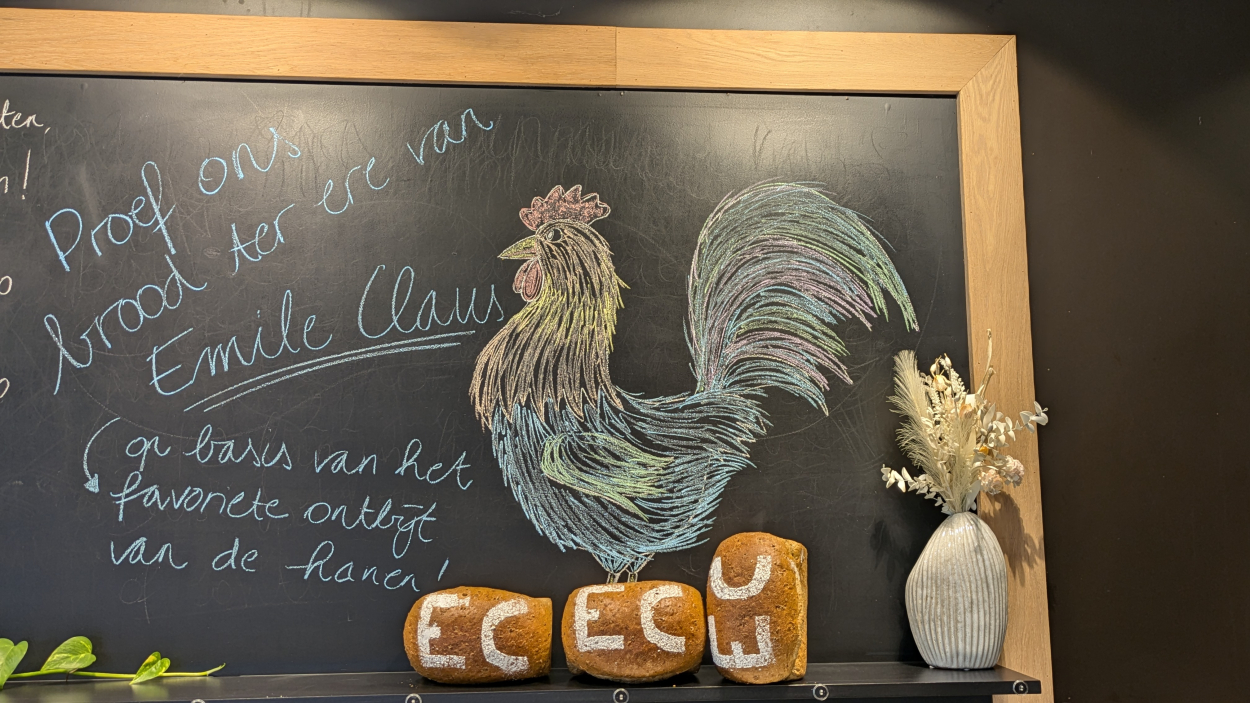 ten,
n!
Proef ons
brood ter ere van
Emile Claus
op basis van het
favoriete ontbijt
van de hanen!
EC
EC
EC